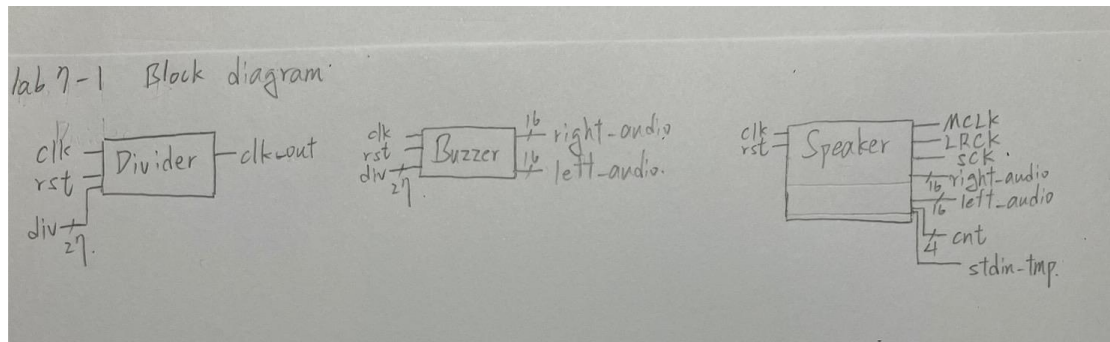 lab 7-1 Block diagram
clk
rst
div
27
Divider
clk_out
clk
rst
div
27
Buzzer
16
right_audio
16
left_audio.
clk
rst
Speaker
MCLK
LRCK
SCK
16
right_audio
16
left_audio
4
cnt
stdin_tmp.